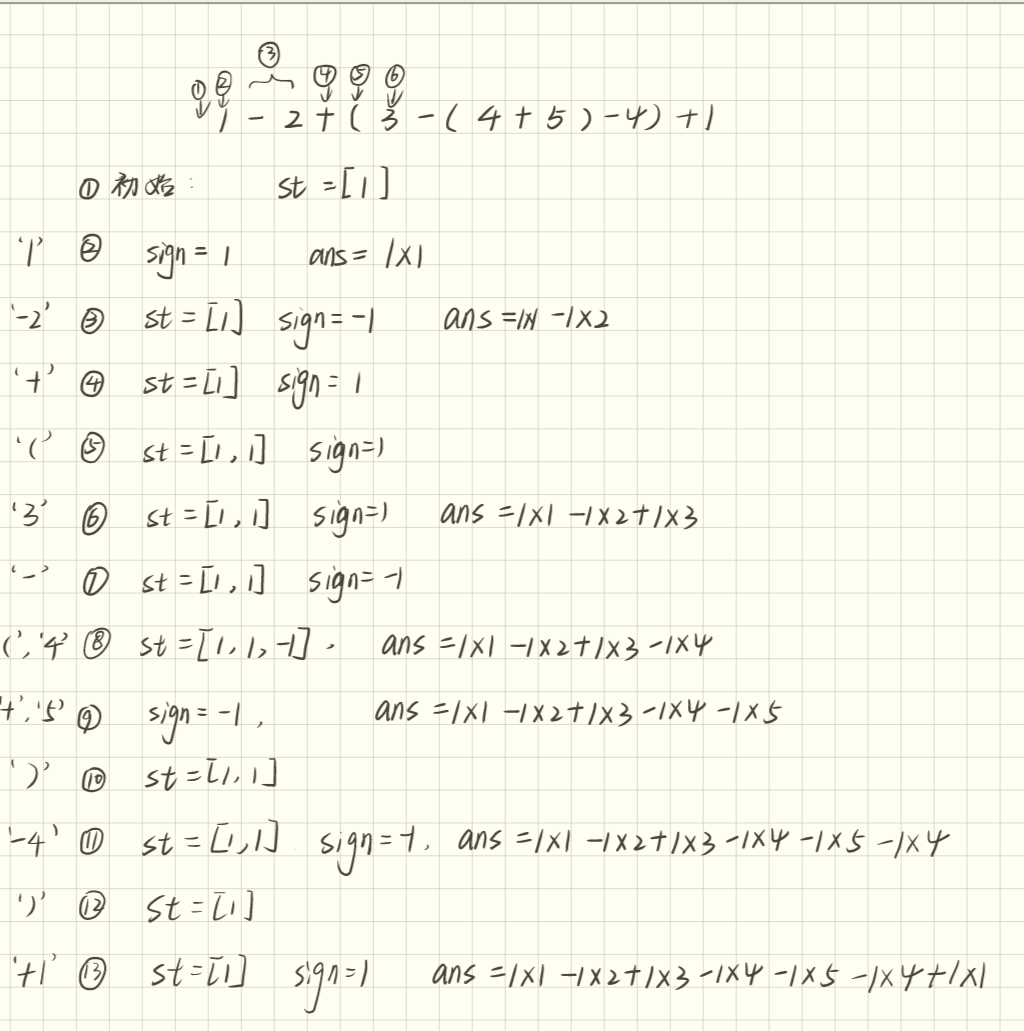 ③
① ② ④ ⑤ ⑥
1 - 2 + ( 3 - ( 4 + 5 ) - 4 ) + 1
① 初始: st = [1]
'1' ② sign = 1 ans = 1×1
'-2' ③ st = [1] sign = -1 ans = 1×1 -1×2
'+' ④ st = [1] sign = 1
'(' ⑤ st = [1, 1] sign=1
'3' ⑥ st = [1, 1] sign=1 ans = 1×1 -1×2+1×3
'-' ⑦ st = [1, 1] sign= -1
(', '4' ⑧ st = [1, 1, -1], ans = 1×1 -1×2+1×3 -1×4
'+', '5' ⑨ sign = -1, ans = 1×1 -1×2+1×3 -1×4 -1×5
')' ⑩ st = [1, 1]
'-4' ⑪ st = [1, 1] sign = -1, ans = 1×1 -1×2+1×3 -1×4 -1×5 -1×4
')' ⑫ st = [1]
'+1' ⑬ st = [1] sign=1 ans = 1×1 -1×2+1×3 -1×4 -1×5 -1×4+1×1